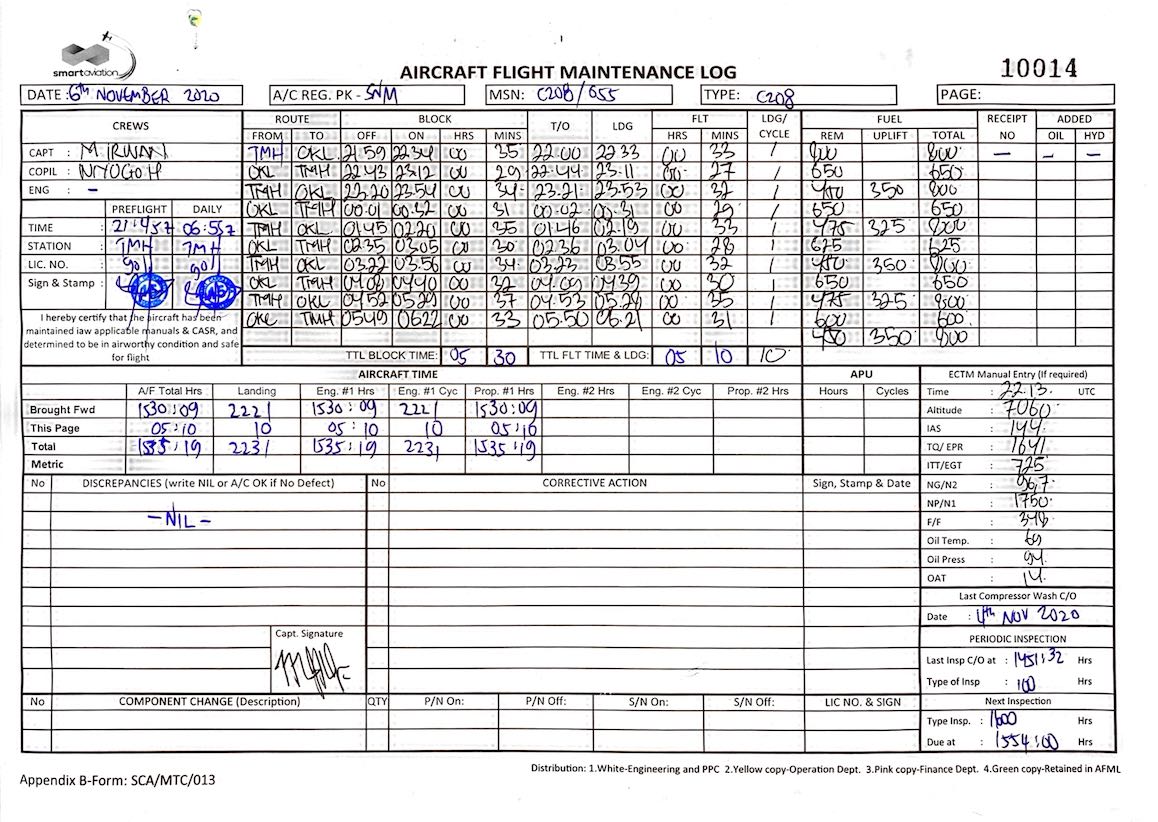 smartaviation
AIRCRAFT FLIGHT MAINTENANCE LOG 10014
DATE : 6th NOVEMBER 2020 A/C REG. PK - SNM MSN: C208/655 TYPE: C208 PAGE:
CREWS ROUTE BLOCK T/O LDG FLT LDG/ CYCLE FUEL RECEIPT NO ADDED
FROM TO OFF ON HRS MINS HRS MINS REM UPLIFT TOTAL OIL HYD
CAPT : M. IRWAN TMH OKL 21:59 2234 00 35 22:00 22 33 00 33 1 800 800 — — —
COPIL : OKL TMH 22 43 23 12 00 29 22:44 23.11 00 27 1 650 650
ENG : - TMH OKL 23.20 23.54 00 34 23.21 23.53 00 32 1 450 350 800
PREFLIGHT DAILY OKL TMH 00.01 00.32 00 31 00.02 00.31 00 29 1 650 650
TIME : 21:457 06:557 TMH OKL 01.45 02.20 00 35 01.46 02.19 00 33 1 475 325 800
STATION : TMH TMH OKL TMH 02.35 03.05 00 30 02.36 03.04 00 28 1 625 625
LIC. NO. : TMH OKL 03.22 03.56 00 34 03.23 03.55 00 32 1 450 350 800
Sign & Stamp : OKL TMH 04.08 04.40 00 32 04.09 04.39 00 30 1 650 650
TMH OKL 04 52 05.29 00 37 04.53 05.28 00 35 1 475 325 800
I hereby certify that the aircraft has been OKL TMH 0549 0622 00 33 05.50 06.21 00 31 1 600 600
maintained iaw applicable manuals & CASR, and 450 350 800
determined to be in airworthy condition and safe
for flight TTL BLOCK TIME: 05 30 TTL FLT TIME & LDG: 05 10 10
AIRCRAFT TIME APU ECTM Manual Entry (If required)
A/F Total Hrs Landing Eng. #1 Hrs Eng. #1 Cyc Prop. #1 Hrs Eng. #2 Hrs Eng. #2 Cyc Prop. #2 Hrs Hours Cycles Time : 22.13. UTC
Brought Fwd 1530:09 2221 1530:09 2221 1530:09 Altitude : 7060
This Page 05:10 10 05:10 10 05:10 IAS : 144
Total 1535:19 2231 1535:19 2231 1535:19 TQ/ EPR : 1641
Metric ITT/EGT : 725
No DISCREPANCIES (write NIL or A/C OK if No Defect) No CORRECTIVE ACTION Sign, Stamp & Date NG/N2 : 96,7
NP/N1 : 1750
- NIL - F/F : 348
Oil Temp. : 69
Oil Press : 94
OAT : 14
Last Compressor Wash C/O
Date : 4th NOV 2020
Capt. Signature PERIODIC INSPECTION
Last Insp C/O at : 1451:32 Hrs
Type of Insp : 100 Hrs
No COMPONENT CHANGE (Description) QTY P/N On: P/N Off: S/N On: S/N Off: LIC NO. & SIGN Next Inspection
Type Insp. : 1600 Hrs
Due at : 1554:00 Hrs
Distribution: 1.White-Engineering and PPC 2.Yellow copy-Operation Dept. 3.Pink copy-Finance Dept. 4.Green copy-Retained in AFML
Appendix B-Form: SCA/MTC/013